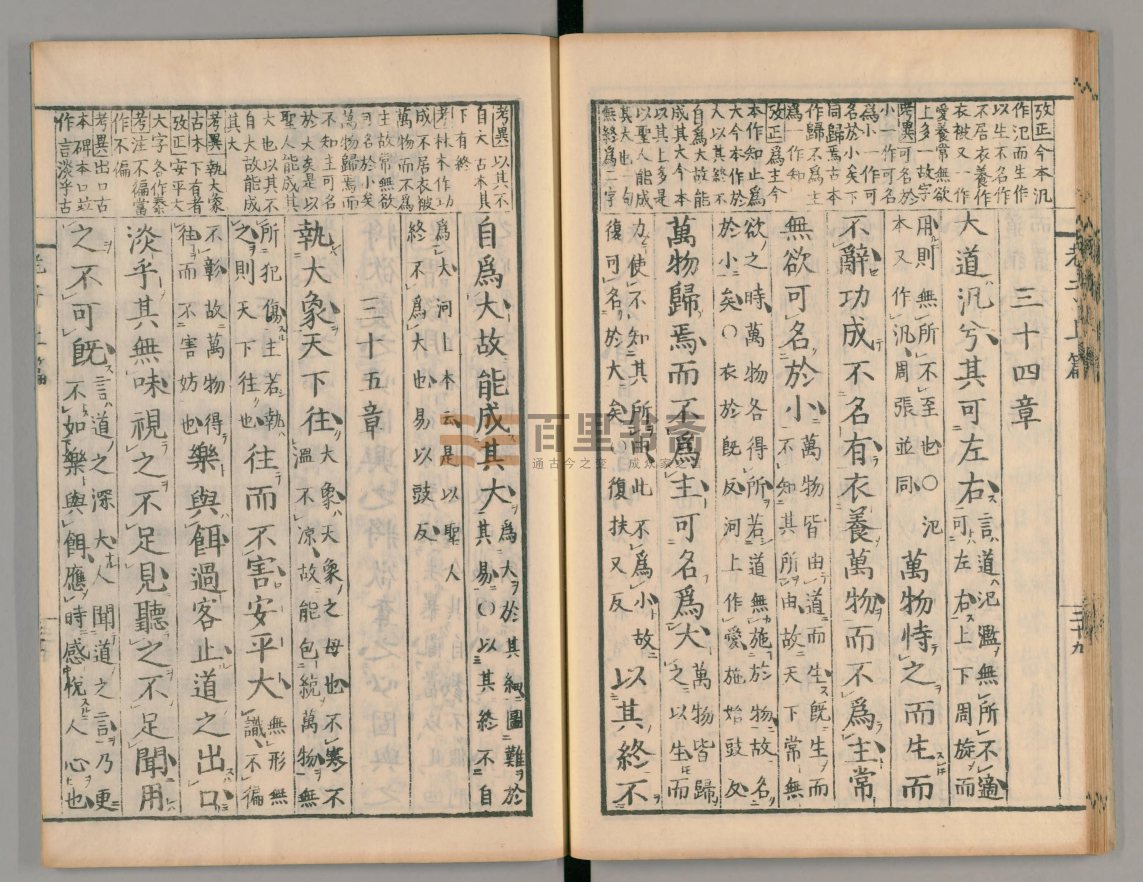 攷正今本汎
作氾而生作
以生不名作
不居衣養作
衣被又一作
愛養常無欲
上多一故字
考異可名於
小一作可名
爲小一作可
名於小矣下
同歸焉古本
作歸不爲主
爲一作知
攷正爲主今
本作知止爲
大今本作於
大以其終不
自爲大故能
成其大今本
以其上多是
以聖人能成
其大也一句
無終爲二字
三十四章
大道汎兮其可左右言道氾濫無所不適可左右上下周旋而
用則無所不至也○氾本又作汎周張並同萬物恃之而生而
不辭功成不名有衣養萬物而不爲主常
無欲可名於小萬物皆由道而生既生而不知其所由故天下常無
欲之時萬物各得所若道無施於物故名於小矣○衣於既反河上作愛施始豉反
萬物歸焉而不爲主可名爲大萬物皆歸之以生而
力使不知其所由此不爲小故復可名於大矣○復扶又反以其終不
老子上篇
三十九
考異以其不
自大古本其
下有終
考林本作功
成不居衣被
萬物而不爲
主故常無欲
可名於小矣
萬物歸焉而
不知主可名
於大矣是以
聖人能成其
大也以其不
自大故能成
其大
考異執大象
古本下有者
攷正安平大
大字各作泰
考注不徧當
作不偏
考異出口古
本碑本口竝
作言淡乎古
自爲大故能成其大爲大於其細圖難於其易○以其終不自
爲大河上本云是以聖人終不爲大也易以豉反
三十五章
執大象天下往大象天象之母也不寒不溫不涼故能包統萬物無
所犯傷主若執之則天下往也往而不害安平大無形無識不徧
不彰故萬物得往而不害妨也樂與餌過客止道之出口
淡乎其無味視之不足見聽之不足聞用
之不可既言道之深大人聞道之言乃更不如樂與餌應時感悅人心也
百里书斋
通古今之变 成众家之言